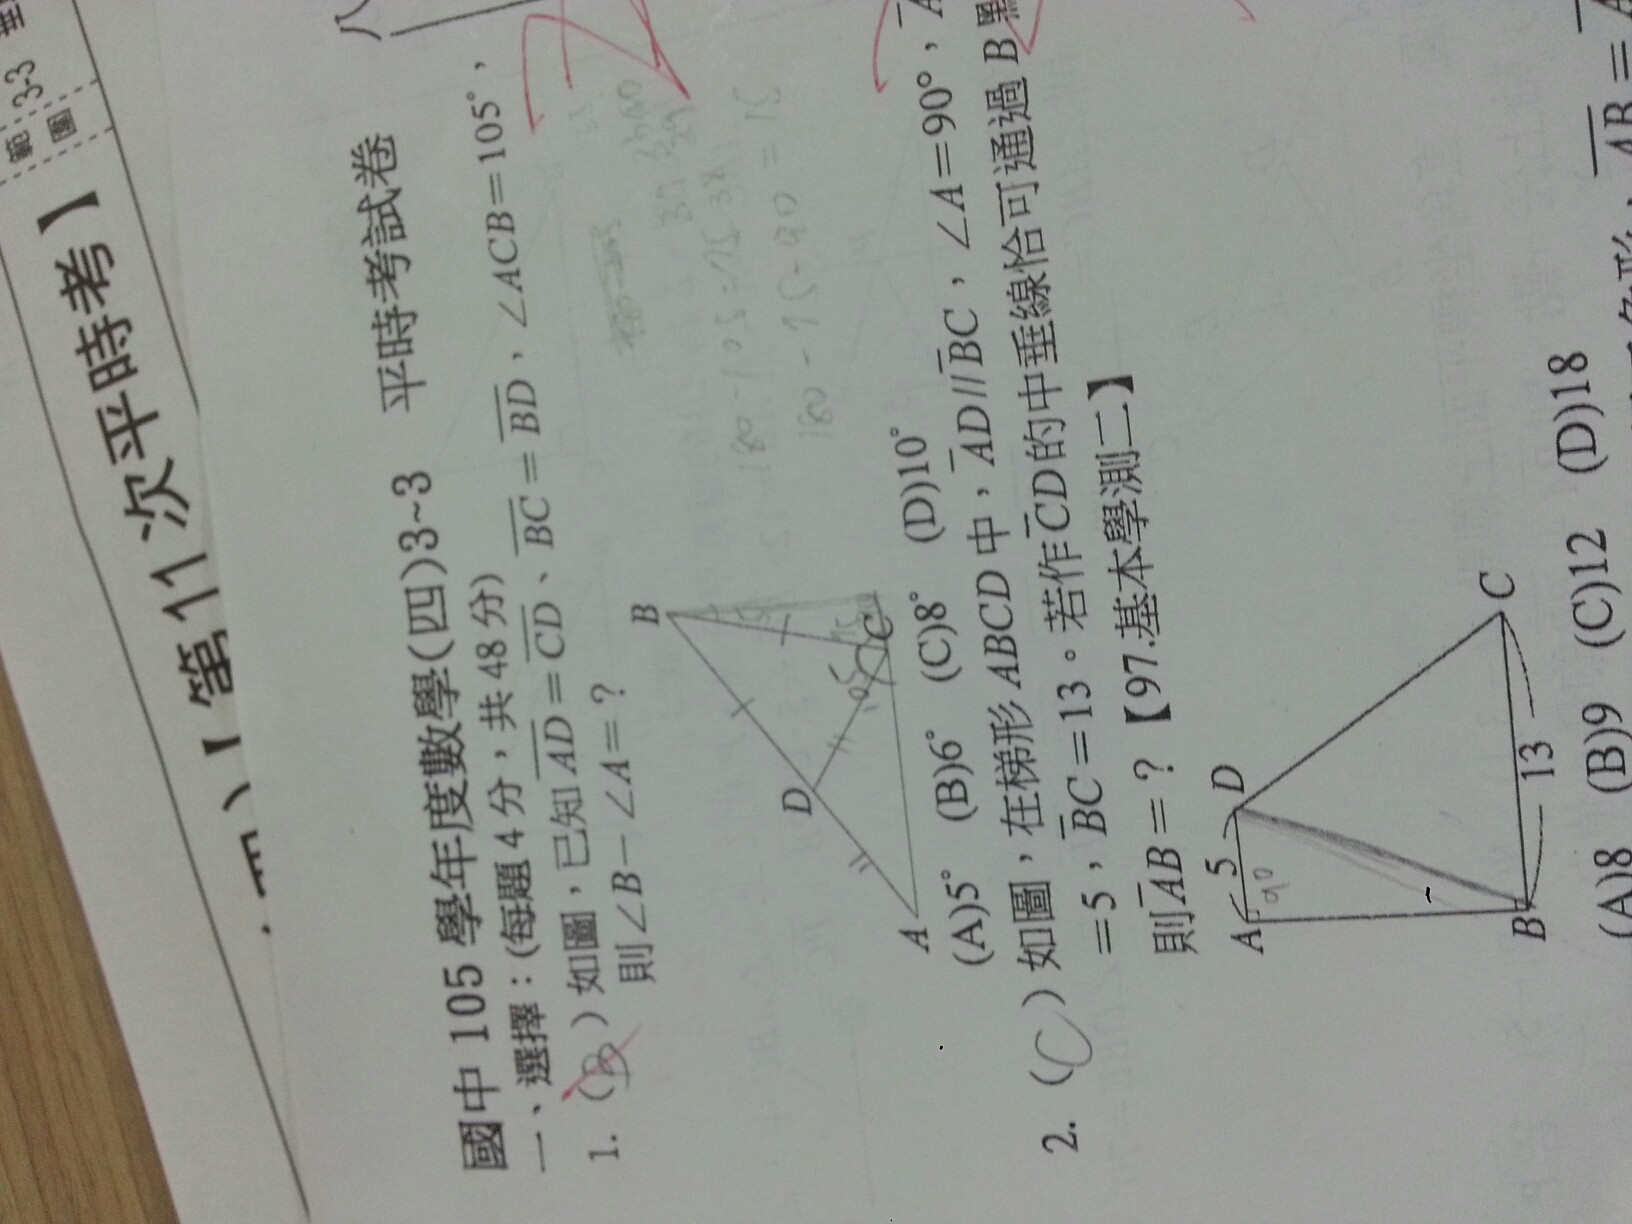 範 3-3 垂
圍
】【第11次平時考】
國中 105 學年度數學(四)3~3 平時考試卷
一、選擇：(每題 4 分，共 48 分)
1. (B) 如圖，已知 AD = CD、BC = BD，∠ACB = 105°，
則∠B－∠A＝？
B
D
C
A
105
180-105=75
180-75-90=15
(A)5° (B)6° (C)8° (D)10°
2. (C) 如圖，在梯形 ABCD 中，AD//BC，∠A＝90°，A
＝5，BC＝13。若作CD的中垂線恰可通過 B 點
則AB＝？【97.基本學測二】
A
5
D
90
B
13
C
(A)8 (B)9 (C)12 (D)18
AB = A